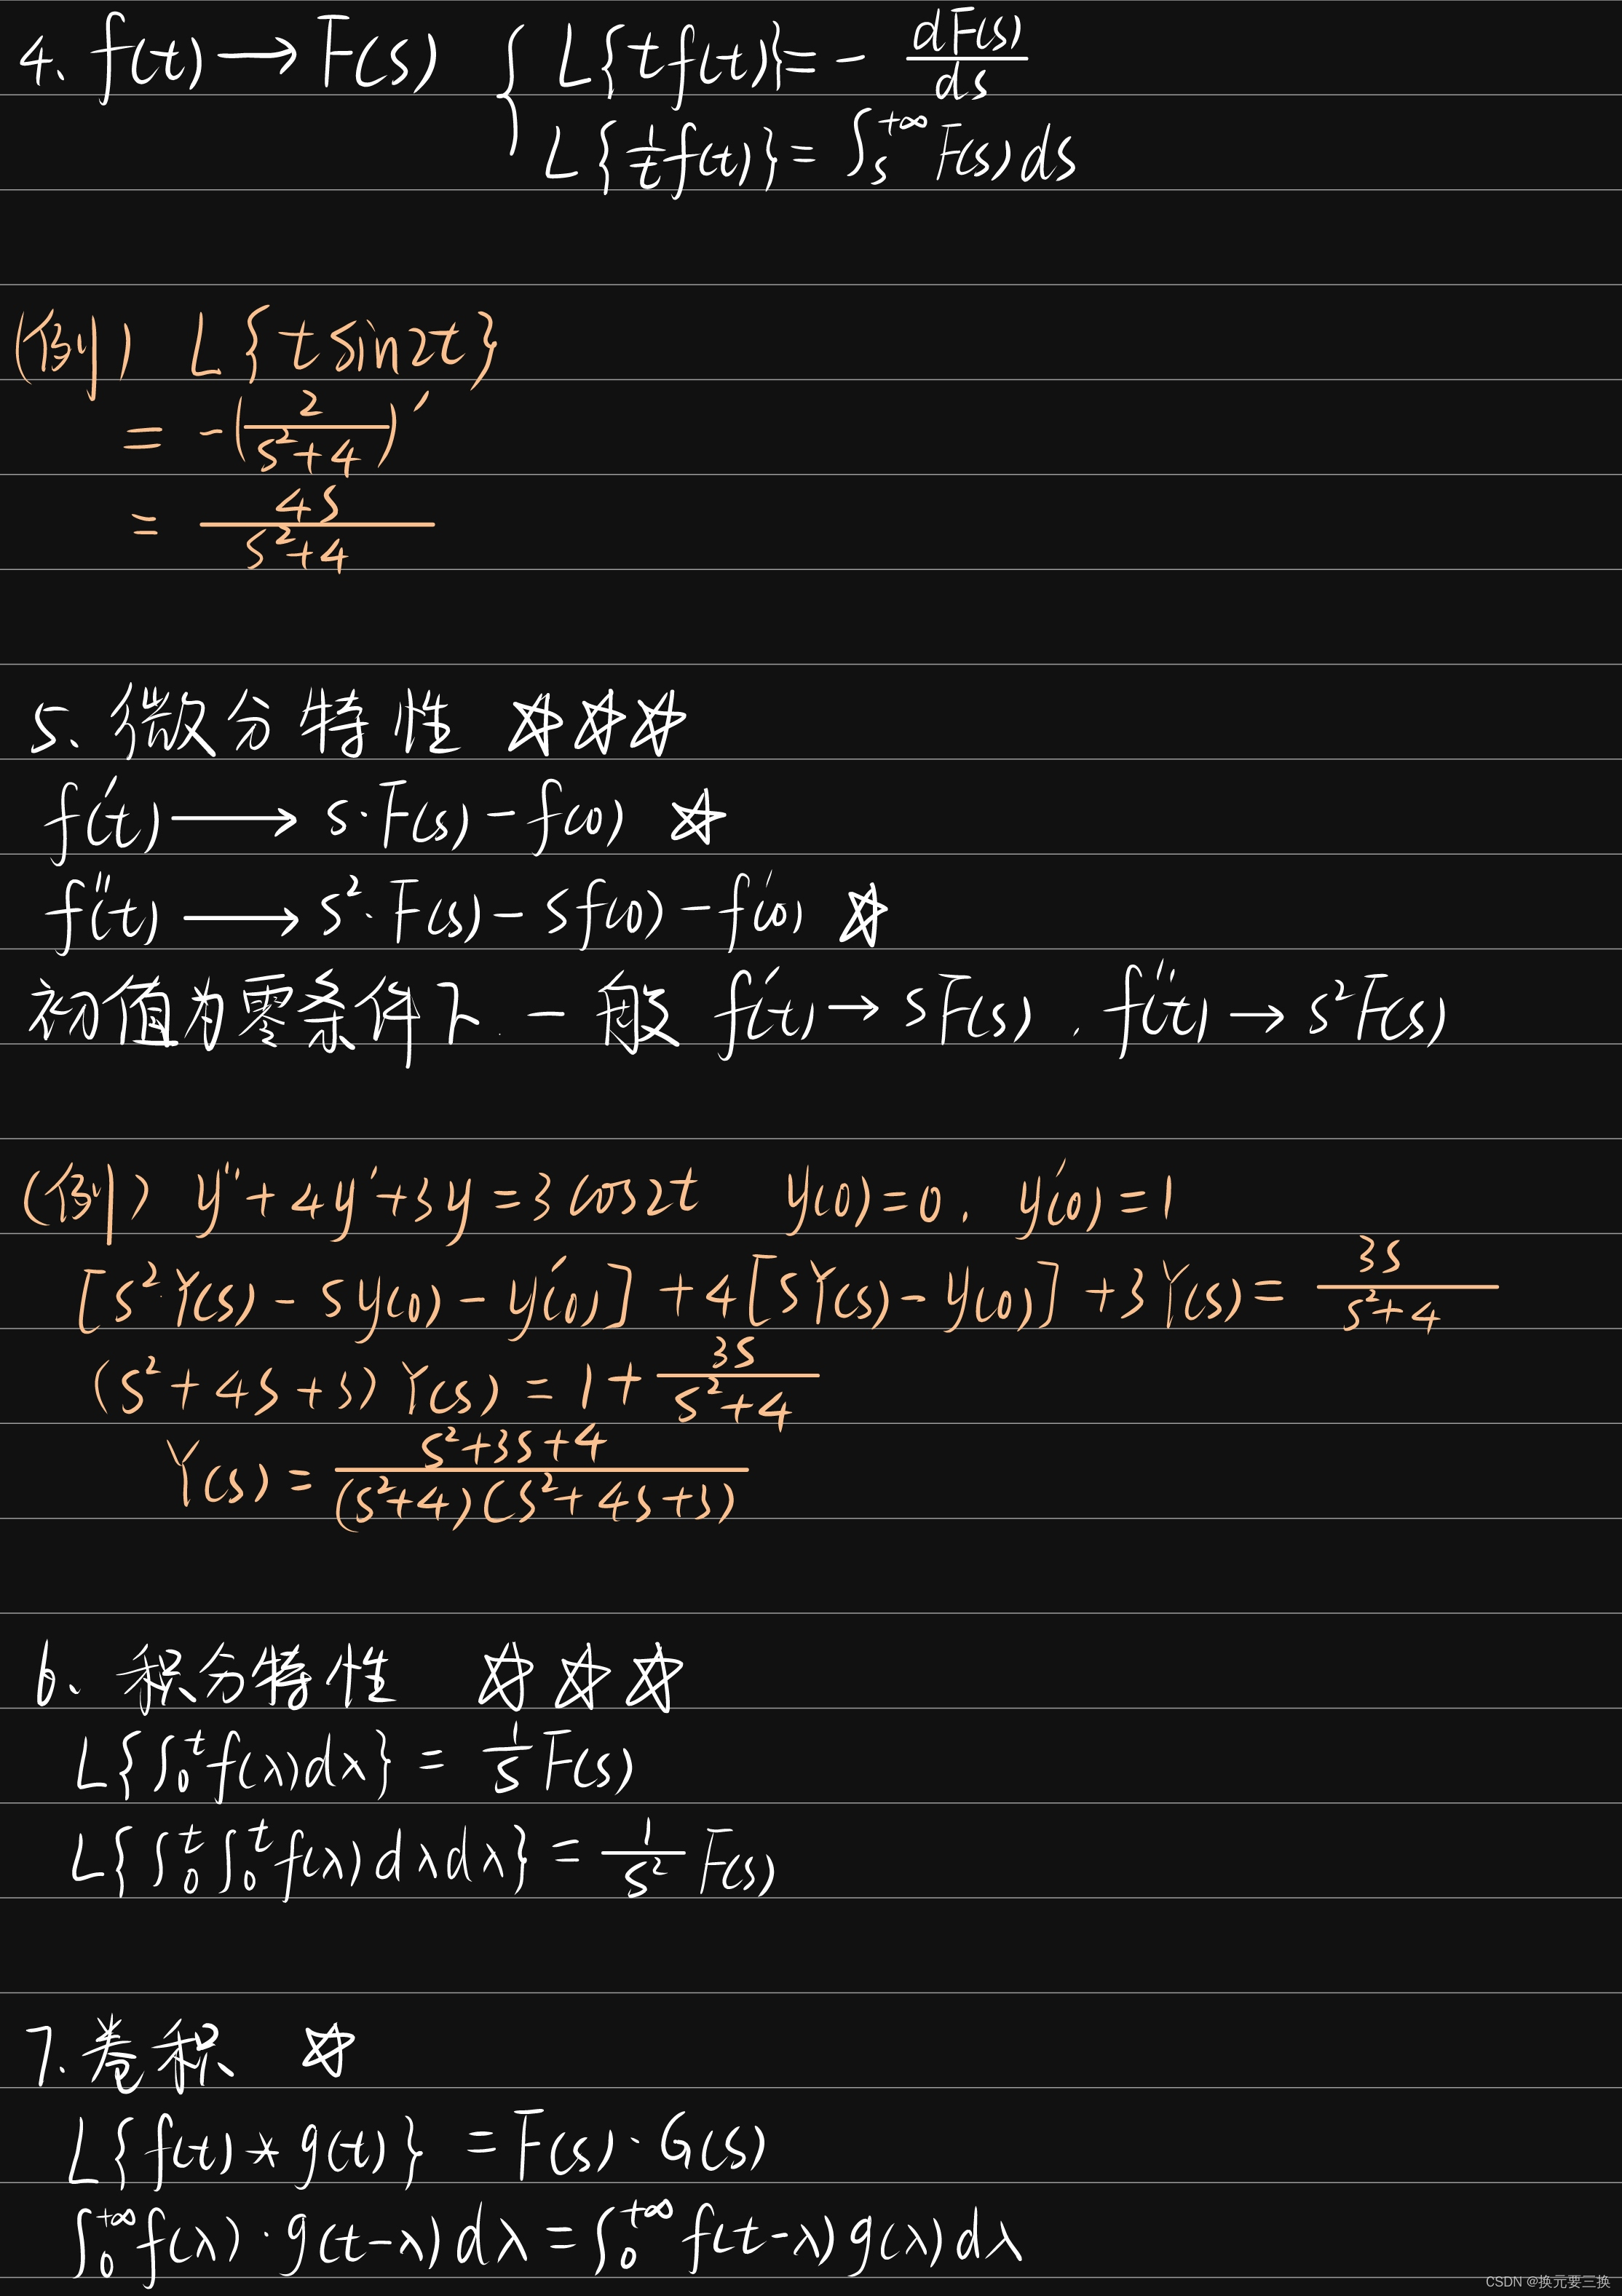 4、f(t)→F(s) { L{tf(t)}=- dF(s)/ds
L{1/t f(t)}=∫_s^{+∞} F(s)ds
(例) L{tsin2t}
= -(2/(s²+4))′
= 4s/(s²+4)
5、微分特性 ☆☆☆
f′(t)→s·F(s)-f(0) ☆
f″(t)→s²·F(s)-sf(0)-f′(0) ☆
初值为零条件下.一般 f′(t)→sF(s),f″(t)→s²F(s)
(例) y″+4y′+3y=3cos2t y(0)=0, y′(0)=1
[s²·Y(s)-sy(0)-y′(0)]+4[sY(s)-y(0)]+3Y(s)=3s/(s²+4)
(s²+4s+3)Y(s)=1+3s/(s²+4)
Y(s)=(s²+3s+4)/((s²+4)(s²+4s+3))
6、积分特性 ☆☆☆
L{∫_0^t f(λ)dλ}=1/s F(s)
L{∫_0^t∫_0^t f(λ)dλdλ}=1/s² F(s)
7.卷积 ☆
L{f(t)*g(t)}=F(s)·G(s)
∫_0^{+∞} f(λ)·g(t-λ)dλ=∫_0^{+∞} f(t-λ)g(λ)dλ
CSDN @换元要三换